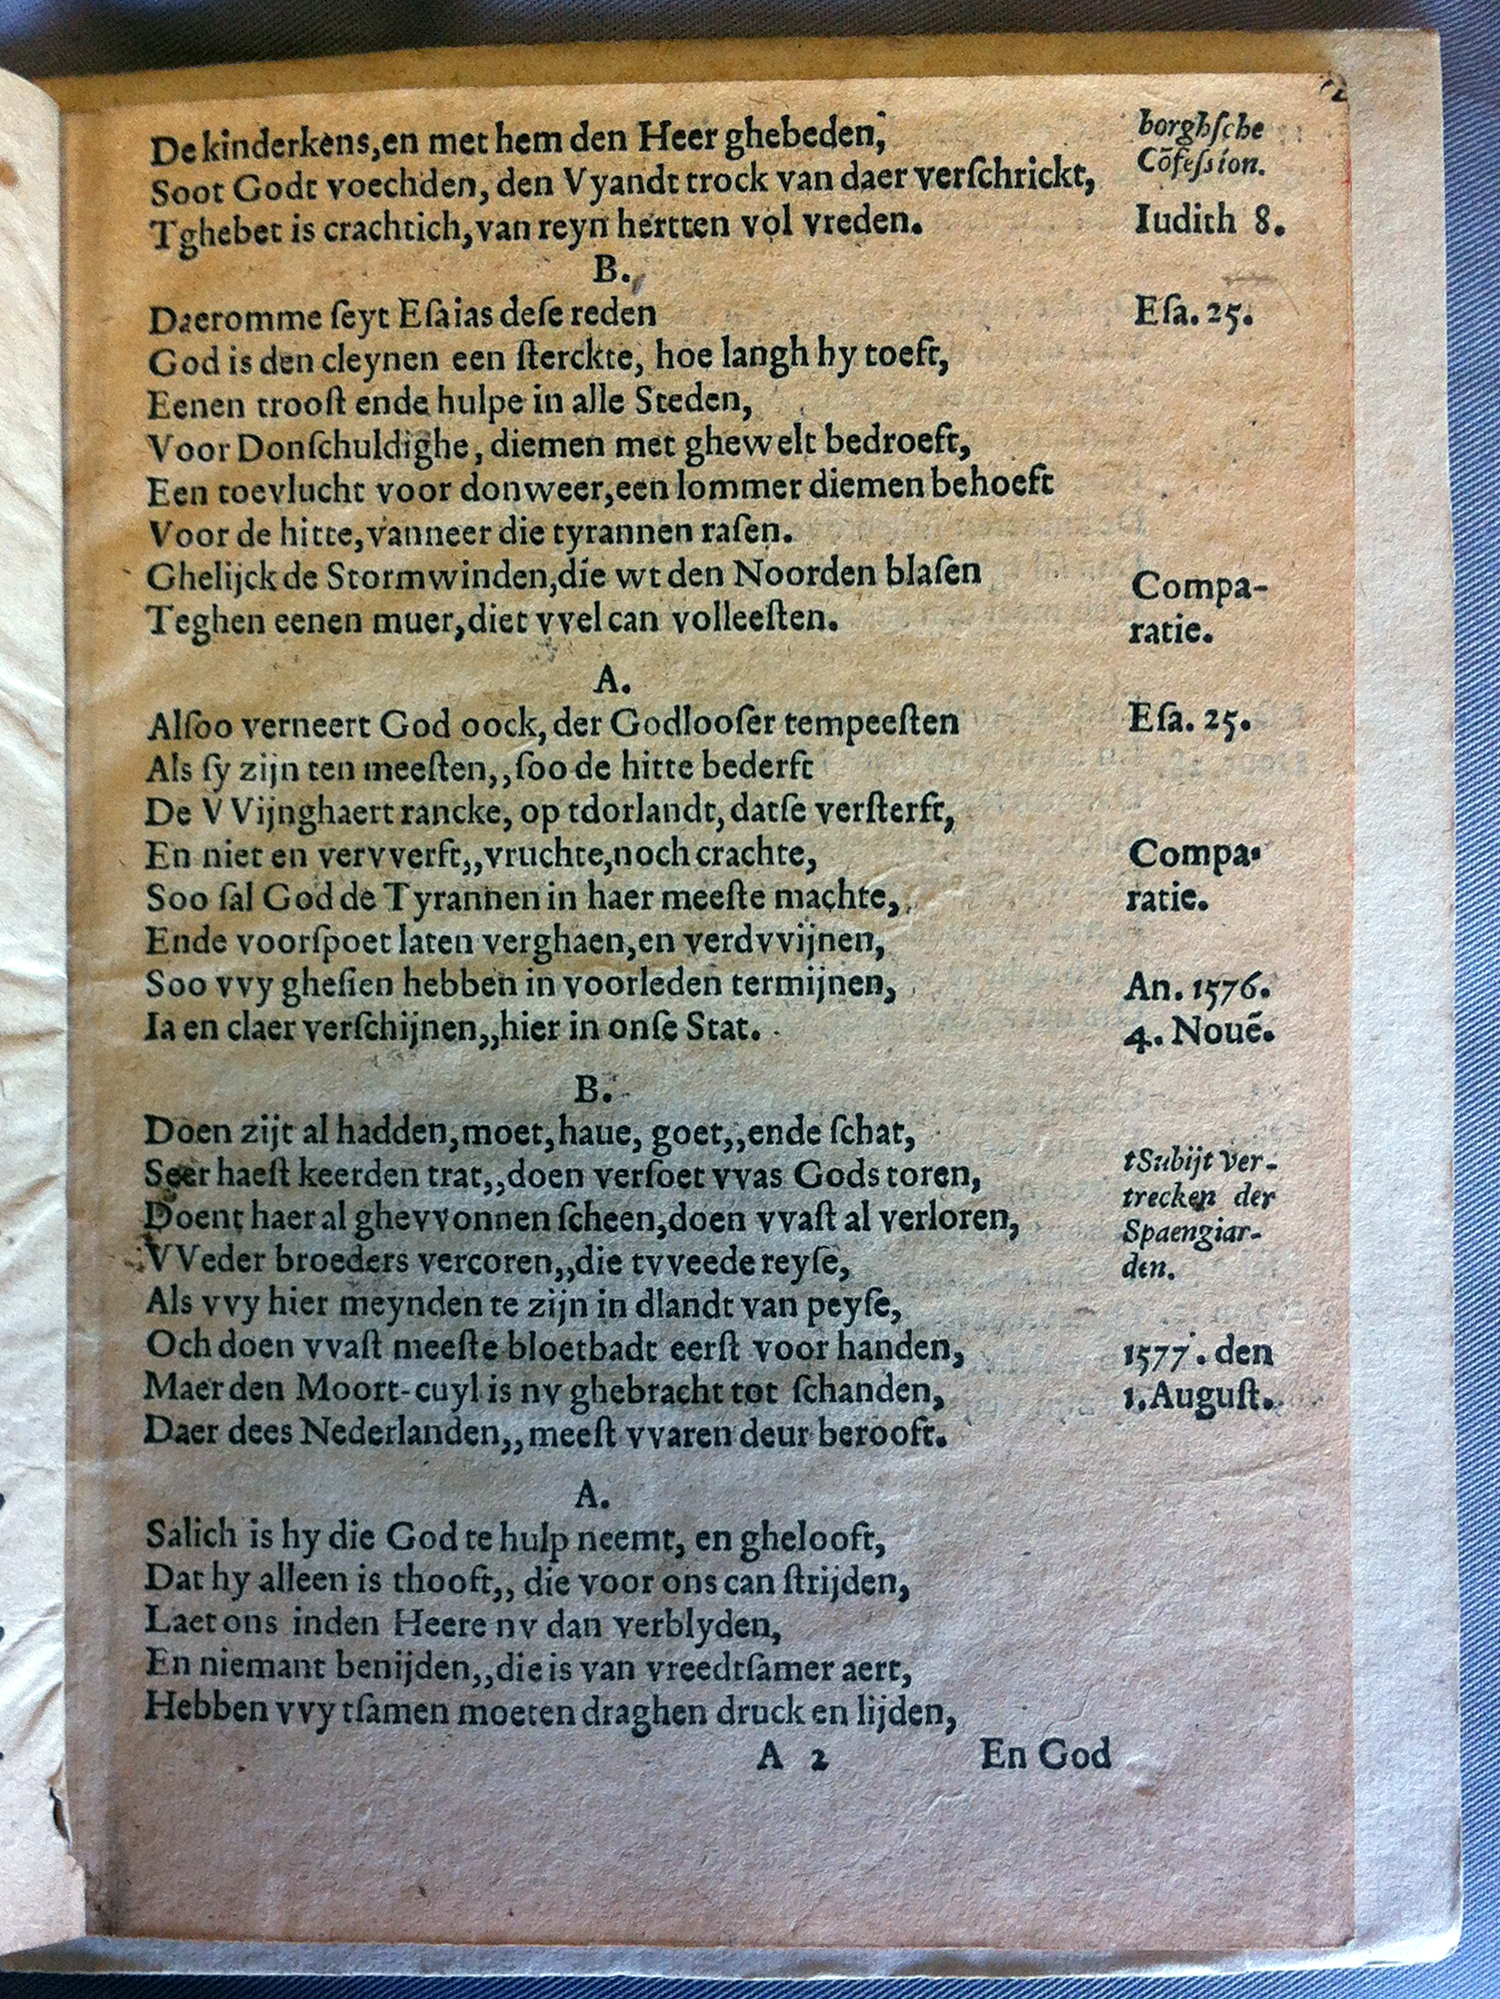 De kinderkens, en met hem den Heer ghebeden,
Soot Godt voechden, den Vyandt trock van daer verſchrickt,
Tghebet is crachtich, van reyn hertten vol vreden.
borghſche
Cõfeſsion.
Iudith 8.
B.
Daeromme ſeyt Eſaias deſe reden
God is den cleynen een ſterckte, hoe langh hy toeft,
Eenen trooſt ende hulpe in alle Steden,
Voor Donſchuldighe, diemen met ghewelt bedroeft,
Een toevlucht voor donweer, een lommer diemen behoeft
Voor de hitte, vanneer die tyrannen raſen.
Ghelijck de Stormwinden, die wt den Noorden blaſen
Teghen eenen muer, diet vvel can volleeſten.
Eſa. 25.
Compa-
ratie.
A.
Alſoo verneert God oock, der Godlooſer tempeeſten
Als ſy zijn ten meeſten,, ſoo de hitte bederft
De VVijnghaert rancke, op tdorlandt, datſe verſterft,
En niet en vervverft,, vruchte, noch crachte,
Soo ſal God de Tyrannen in haer meeſte machte,
Ende voorſpoet laten verghaen, en verdvvijnen,
Soo vvy gheſien hebben in voorleden termijnen,
Ia en claer verſchijnen,, hier in onſe Stat.
Eſa. 25.
Compa-
ratie.
An. 1576.
4. Nouẽ.
B.
Doen zijt al hadden, moet, haue, goet,, ende ſchat,
Seer haeſt keerden trat,, doen verſoet vvas Gods toren,
Doent haer al ghevvonnen ſcheen, doen vvaſt al verloren,
VVeder broeders vercoren,, die tvveede reyſe,
Als vvy hier meynden te zijn in dlandt van peyſe,
Och doen vvaſt meeſte bloetbadt eerſt voor handen,
Maer den Moort-cuyl is nv ghebracht tot ſchanden,
Daer dees Nederlanden,, meeſt vvaren deur berooft.
tSubijt ver-
trecken der
Spaengiar-
den.
1577. den
1. Auguſt.
A.
Salich is hy die God te hulp neemt, en ghelooft,
Dat hy alleen is thooft,, die voor ons can ſtrijden,
Laet ons inden Heere nv dan verblyden,
En niemant benijden,, die is van vreedtſamer aert,
Hebben vvy tſamen moeten draghen druck en lijden,
A 2 En God